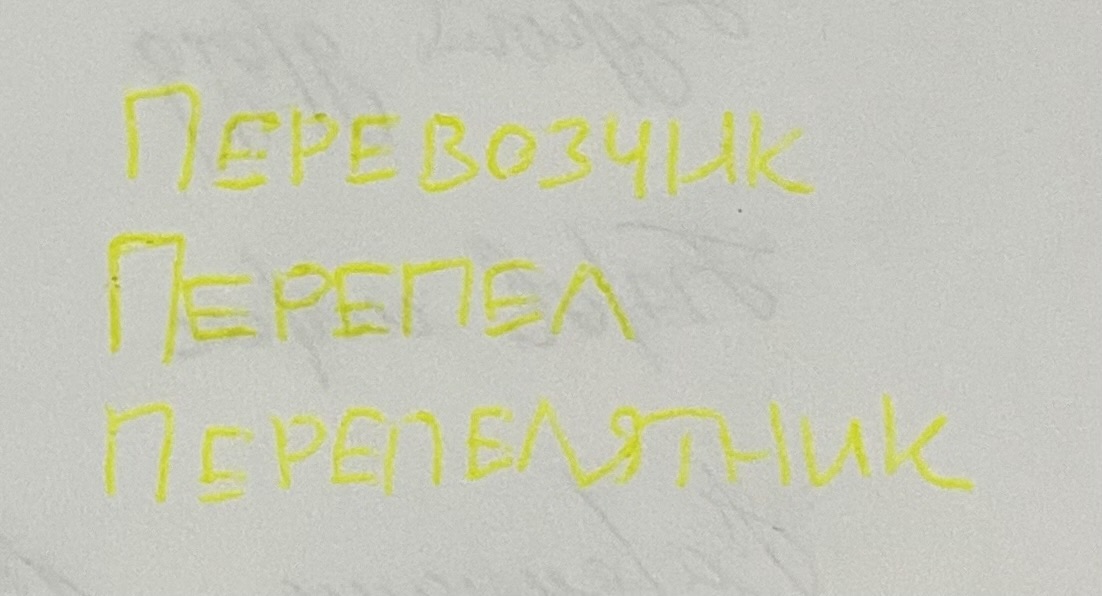 ПЕРЕВОЗЧИК
ПЕРЕПЕЛ
ПЕРЕПЕЛЯТНИК